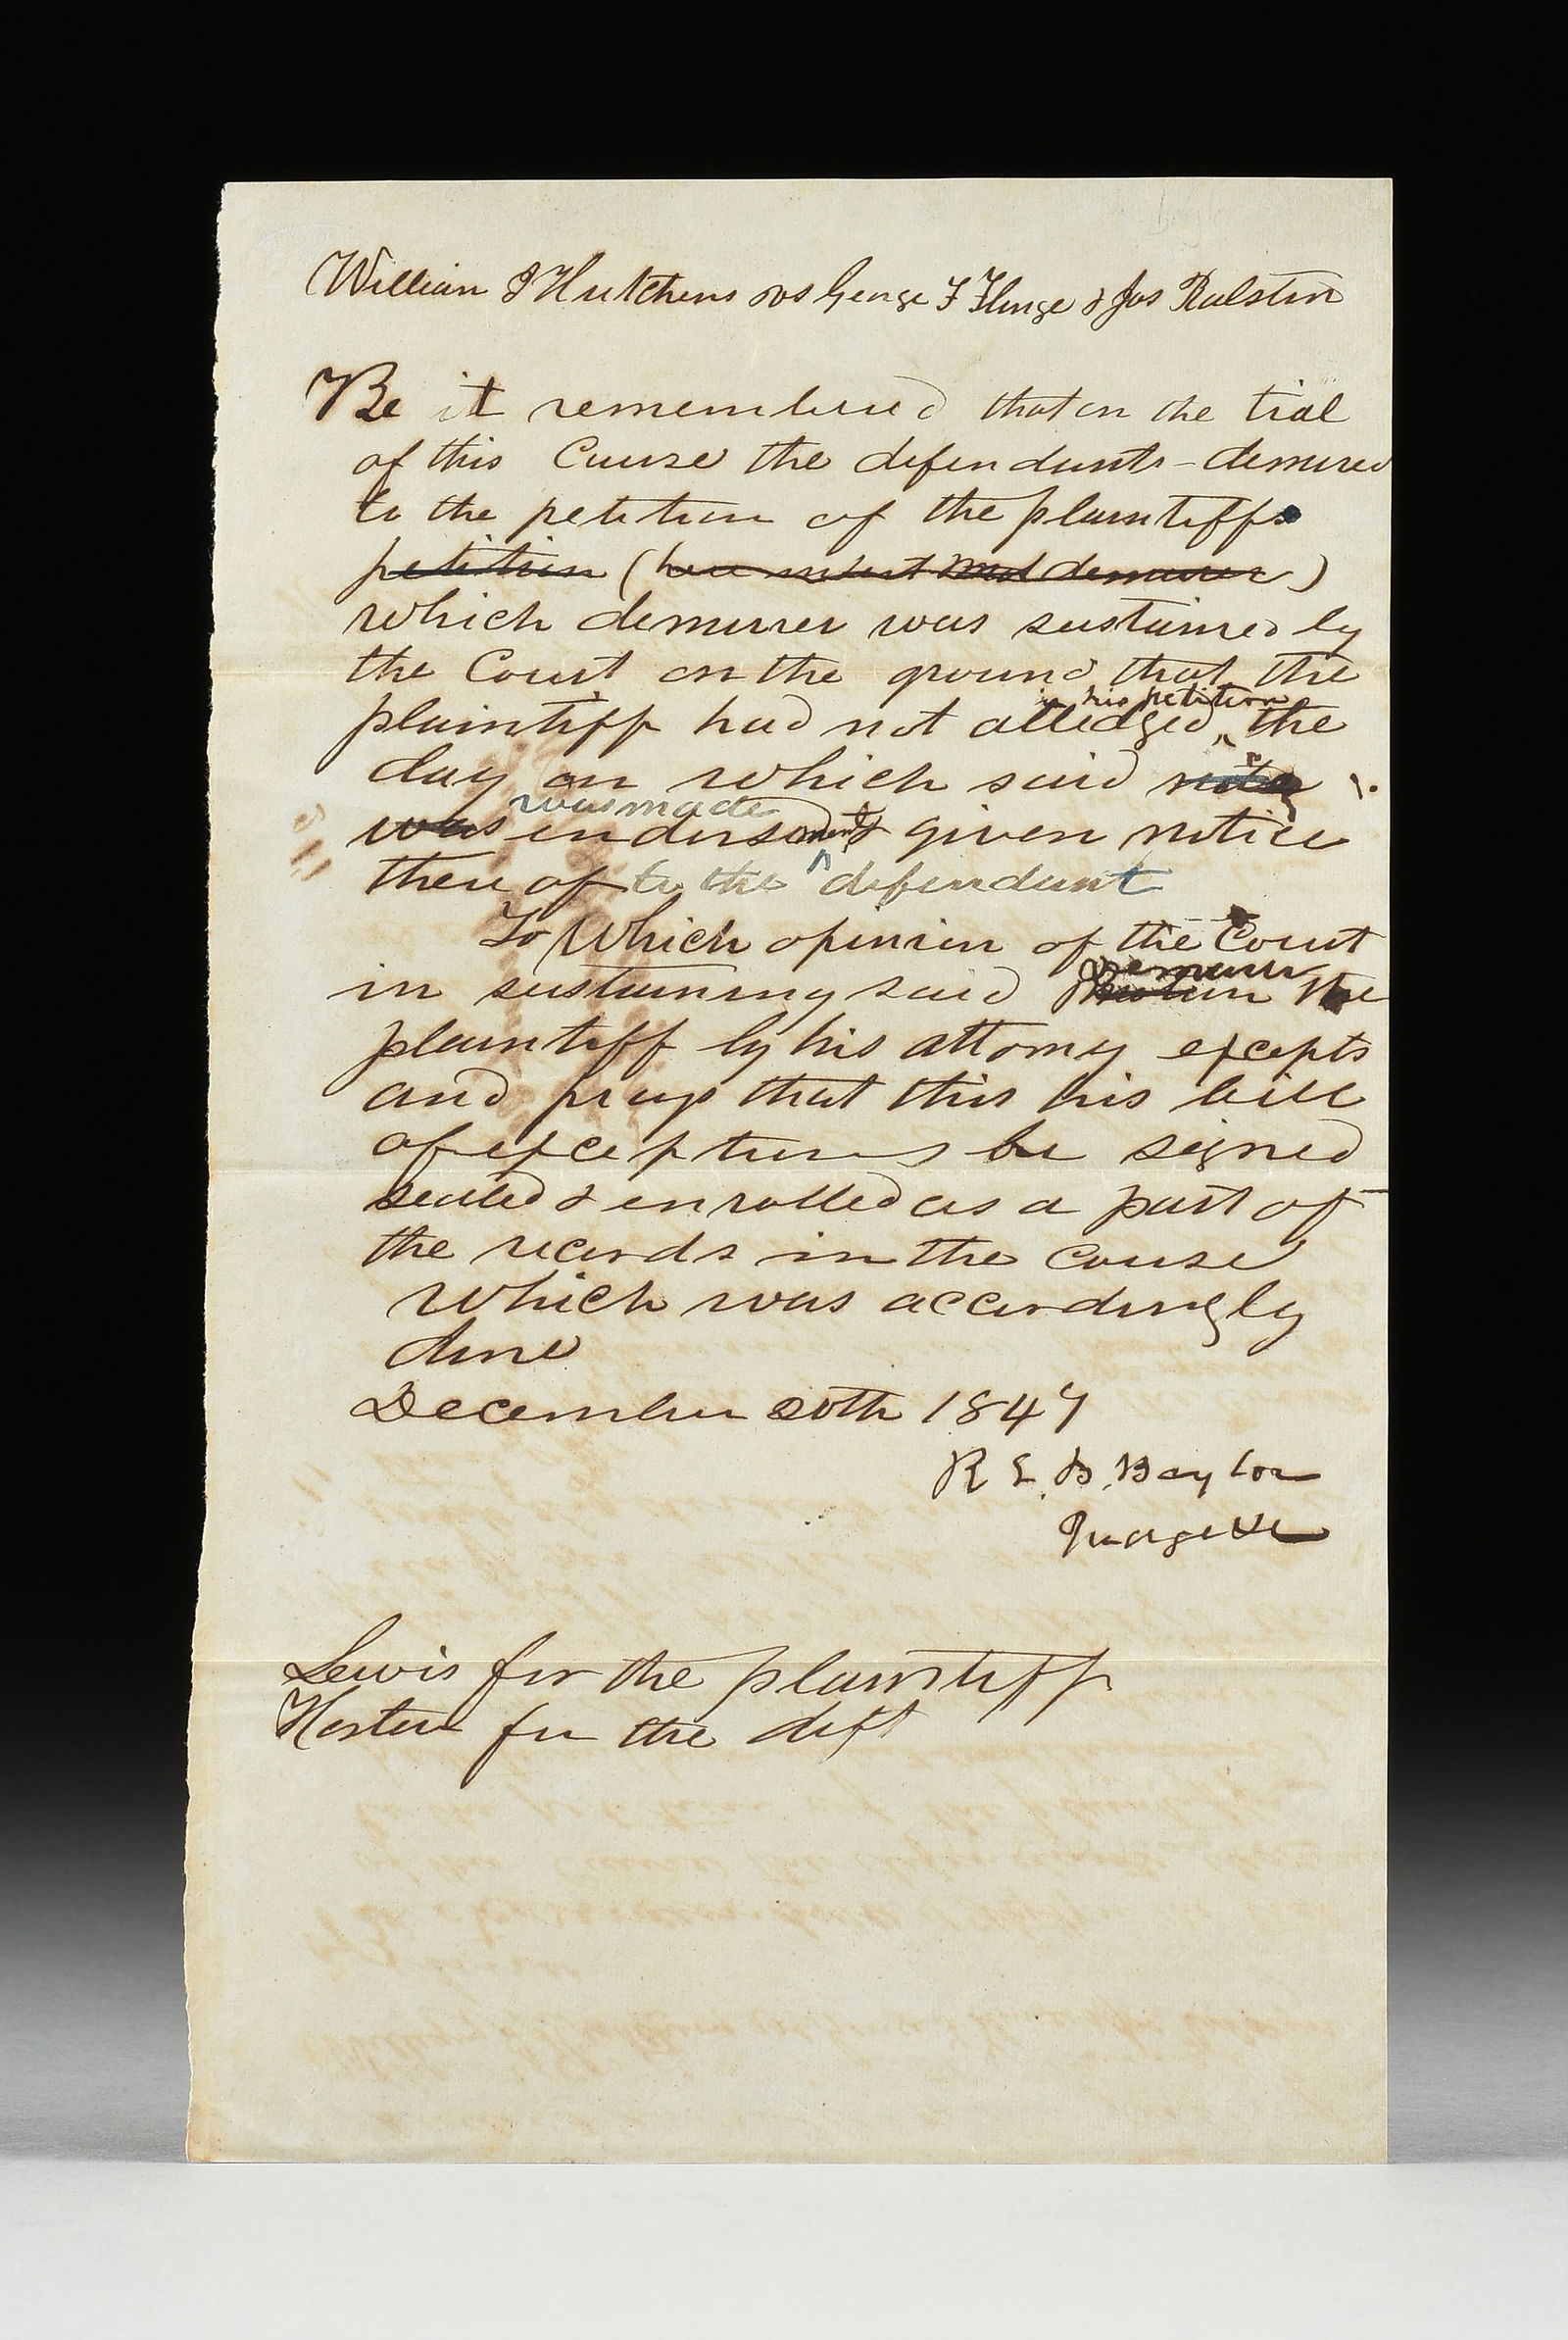 William J Hutchens vs George F Flinge & Jas Ralston
Be it remembered that on the trial
of this Cause the defendants - demured
to the petition of the plaintiffs
petition (
demurrer)
which demurrer was sustained by
the Court on the ground that the
in his petition
plaintiff had not alledged the
day on which said note
was made
was endorsement & given notice
there of to the defendant
To Which opinion of the Court
Demurrer
in sustaining said the
plaintiff by his attorney excepts
and prays that this his bill
of exceptions be signed
sealed & enrolled as a part of
the records in the cause
which was accordingly
done
December 20th 1847
R E. B. Baylor
Judge &c
Lewis for the plaintiff
for the deft